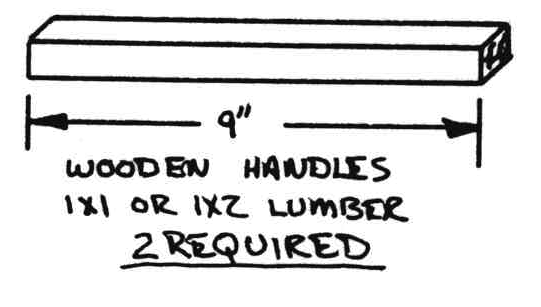 9"
WOODEN HANDLES
1X1 OR 1X2 LUMBER
2 REQUIRED